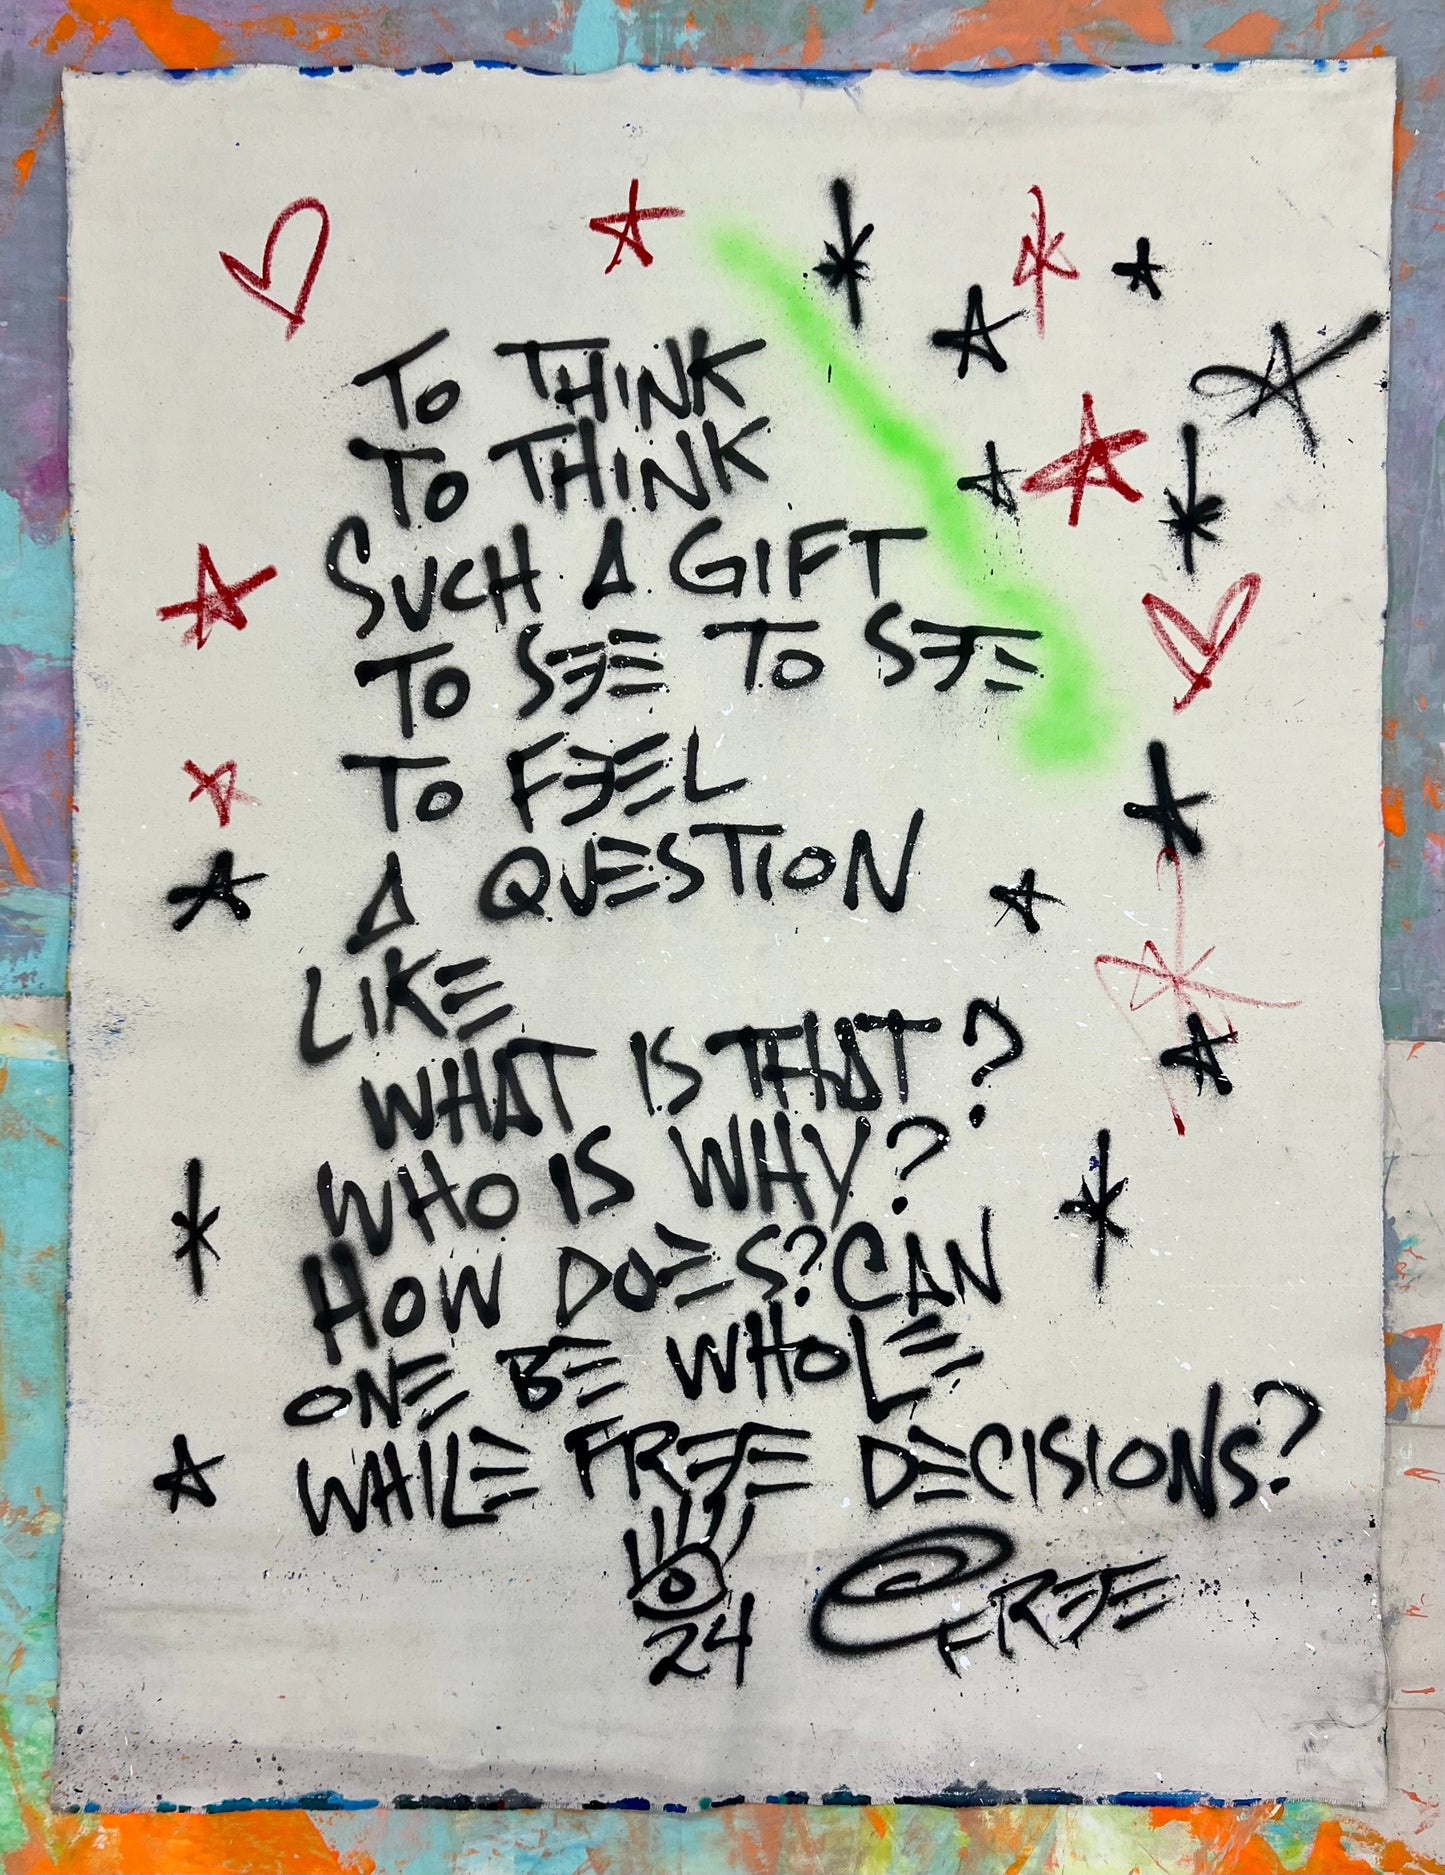 TO THINK
TO THINK
SUCH A GIFT
TO SEE TO SEE
TO FEEL
A QUESTION
LIKE
WHAT IS THAT?
WHO IS WHY?
HOW DOES? CAN
ONE BE WHOLE
WHILE FREE DECISIONS?
24 FREE